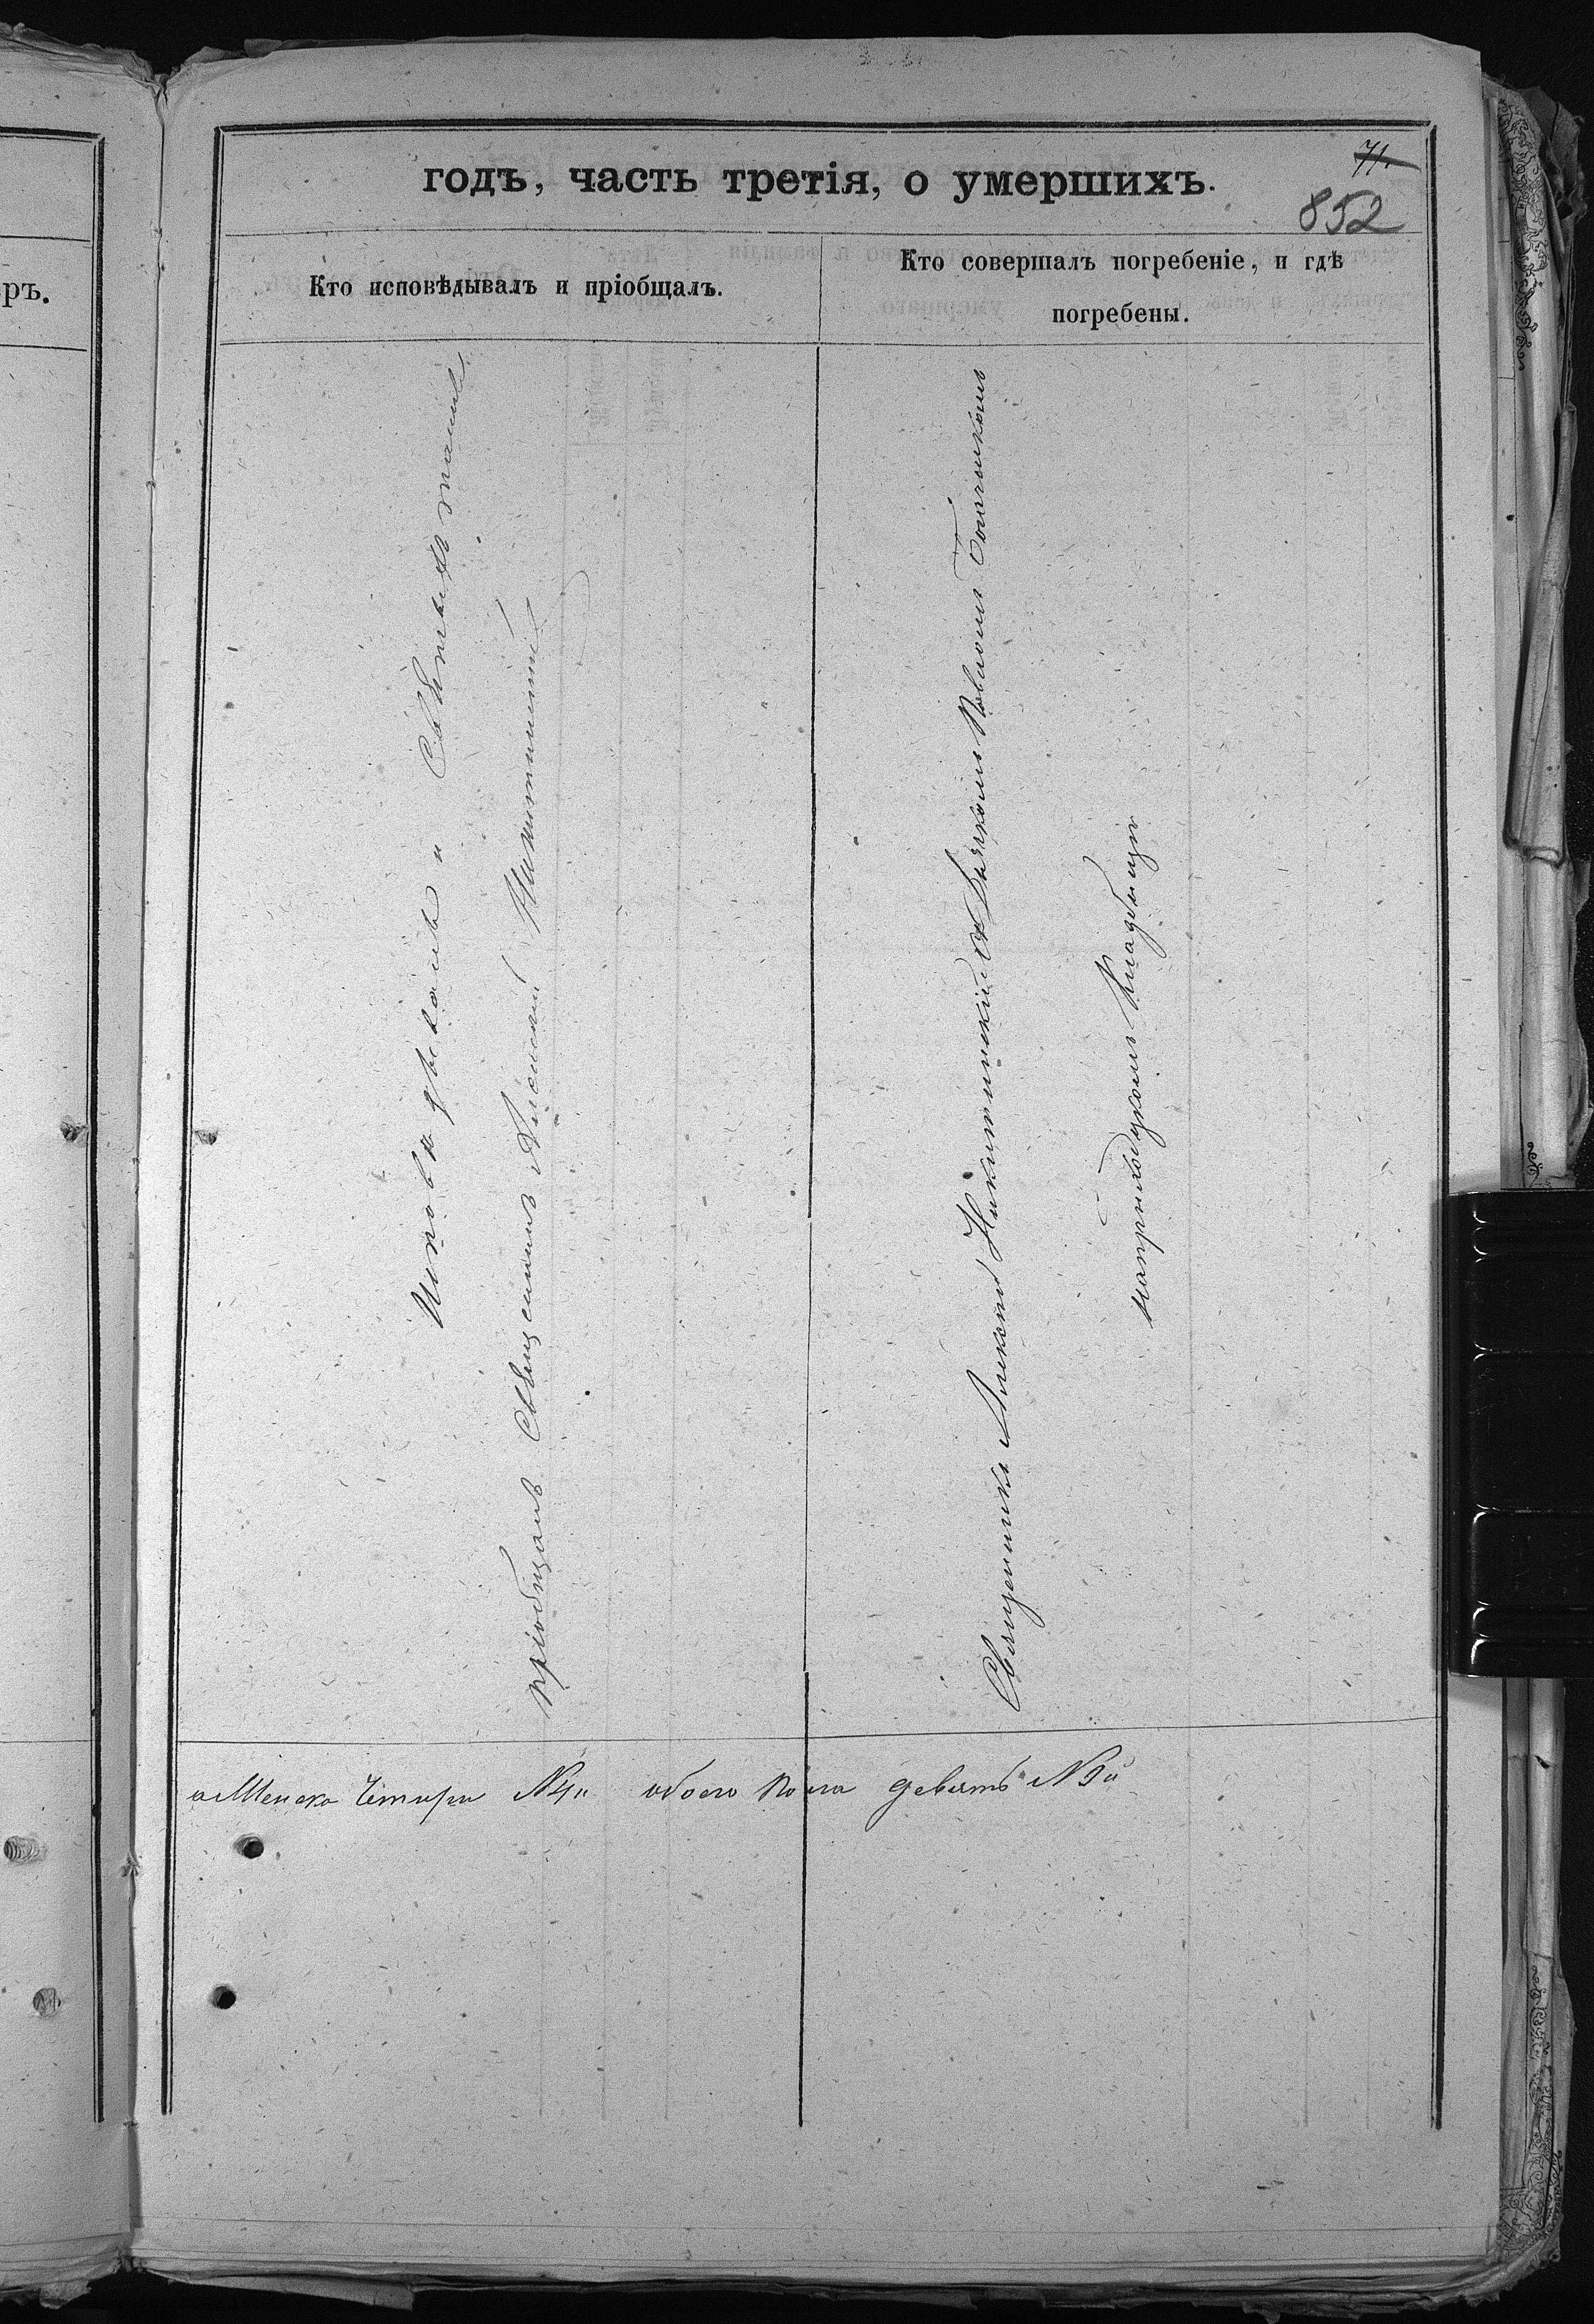 71.
годъ, часть третія, о умершихъ.
852
ръ.
Кто исповѣдывалъ и пріобщалъ.
Кто совершалъ погребеніе, и гдѣ
погребены.
Исповѣдывалъ и Святыхъ таинъ
пріобщалъ Священникъ Алексѣй Никитинскій
Священникъ Алексѣй Никитинскій съ Дьячкомъ
наприходскомъ Кладбищѣ
а Женска Четыри №4и обоего пола девять №9и